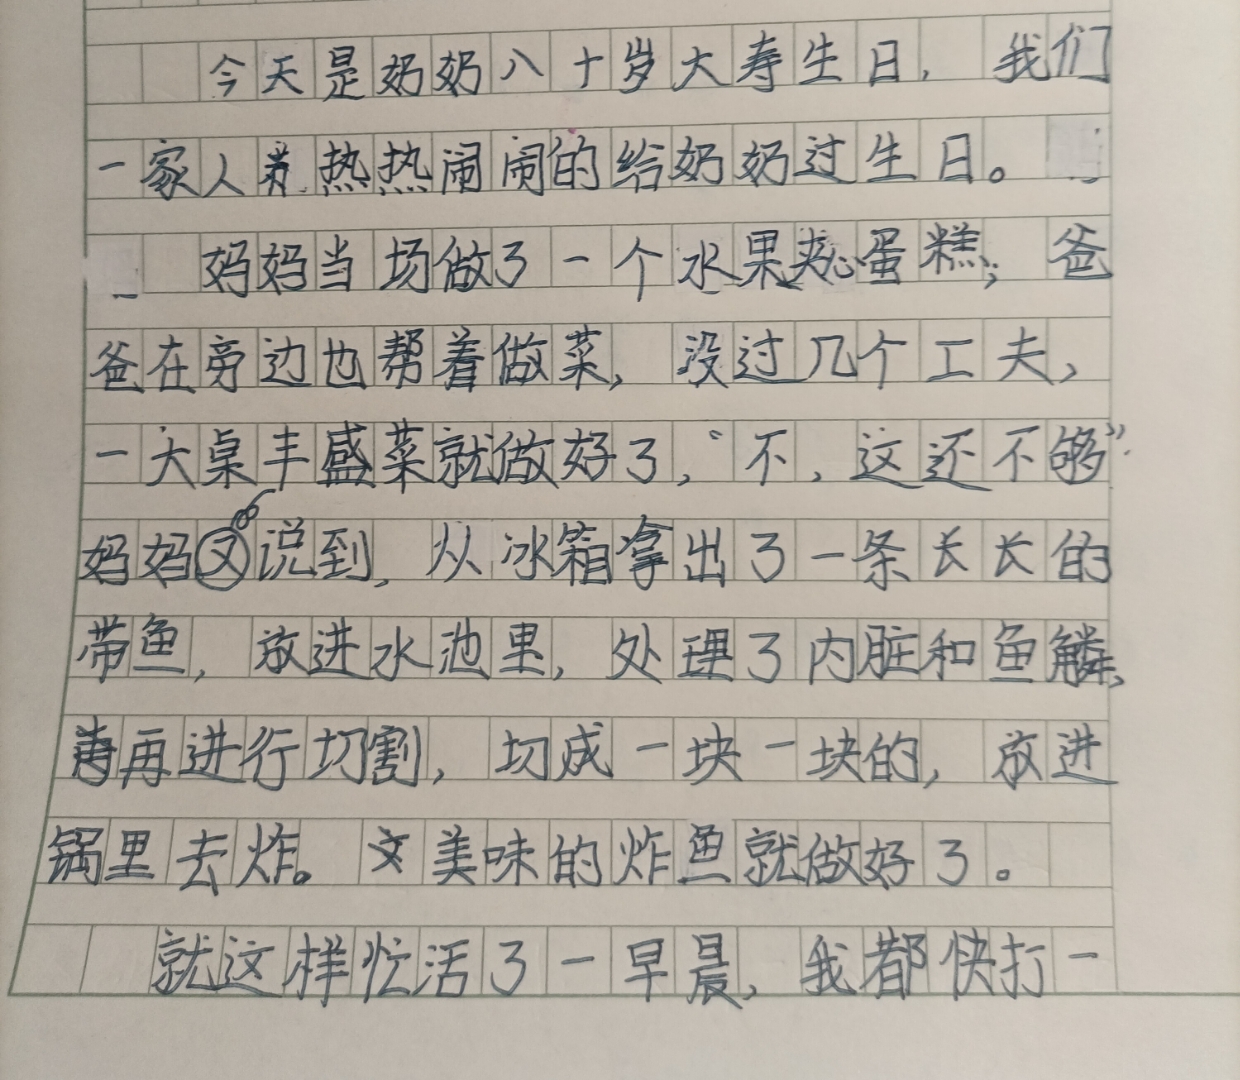 今天是奶奶八十岁大寿生日，我们
一家人热热闹闹的给奶奶过生日。
妈妈当场做了一个水果夹心蛋糕，爸
爸在旁边也帮着做菜，没过几个工夫，
一大桌丰盛菜就做好了，“不，这还不够”
妈妈又说到，从冰箱拿出了一条长长的
带鱼，放进水池里，处理了内脏和鱼鳞，
再进行切割，切成一块一块的，放进
锅里去炸。美味的炸鱼就做好了。
就这样忙活了一早晨，我都快打一